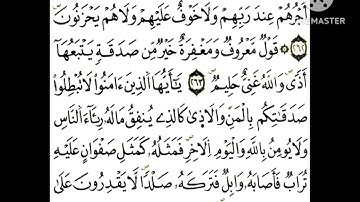 أَجْرُهُمْ عِندَ رَبِّهِمْ وَلَا خَوْفٌ عَلَيْهِمْ وَلَا هُمْ يَحْزَنُونَ
﴿٢٦٢﴾ ۞ قَوْلٌ مَّعْرُوفٌ وَمَغْفِرَةٌ خَيْرٌ مِّن صَدَقَةٍ يَتْبَعُهَا
أَذًى وَاللَّهُ غَنِيٌّ حَلِيمٌ ﴿٢٦٣﴾ يَٰٓأَيُّهَا الَّذِينَ ءَامَنُوا لَا تُبْطِلُوا
صَدَقَٰتِكُم بِالْمَنِّ وَالْأَذَىٰ كَالَّذِي يُنفِقُ مَالَهُۥ رِئَآءَ النَّاسِ
وَلَا يُؤْمِنُ بِاللَّهِ وَالْيَوْمِ الْءَاخِرِ فَمَثَلُهُۥ كَمَثَلِ صَفْوَانٍ عَلَيْهِ
تُرَابٌ فَأَصَابَهُۥ وَابِلٌ فَتَرَكَهُۥ صَلْدًا لَّا يَقْدِرُونَ عَلَىٰ